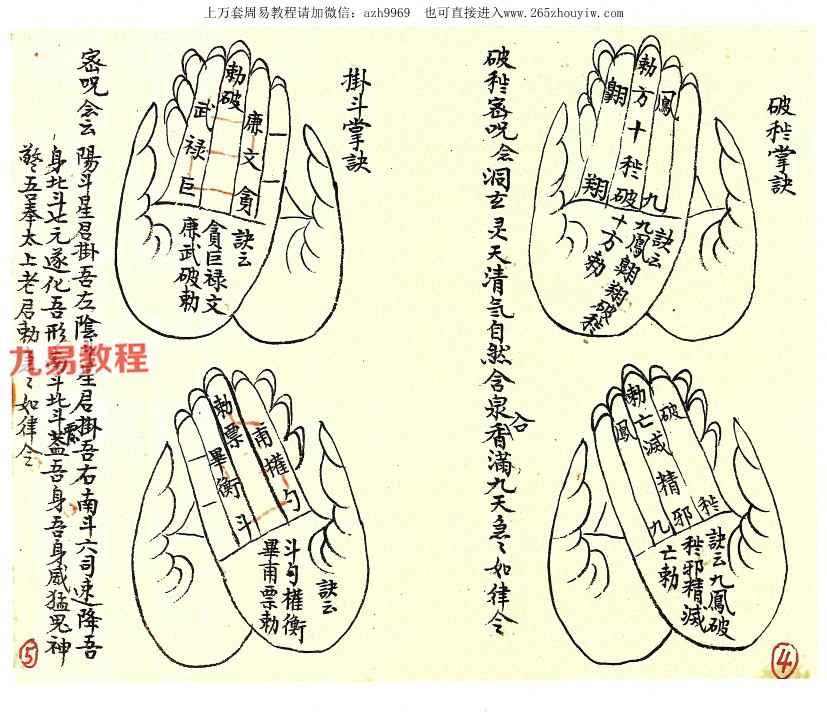 上万套周易教程请加微信: azh9969 也可直接进入www.265zhouyiw.com
破秽掌訣
勅方十秽破
鳳
九
翺
翔
訣云
九鳳翺翔破秽
十方勅
勅亡滅精邪
破
秽
鳳
九
訣云九鳳破
秽邪精滅
亡勅
破秽密咒会洞玄灵天清气自然含泉香滿九天急〻如律令
合
④
掛斗掌訣
勅破
廉文貪
武
禄
巨
訣云
貪巨禄文
廉武破勅
勅票
甫權勺
畢衡斗
訣云
斗勺權衡
畢甫票勅
密咒会云
陽斗星君掛吾左陰斗星君掛吾右南斗六司速降吾
身北斗七元遂化吾形
斗北斗蓋吾身吾身威猛鬼神
驚吾奉太上老君勅
〻如律令
九易教程
⑤